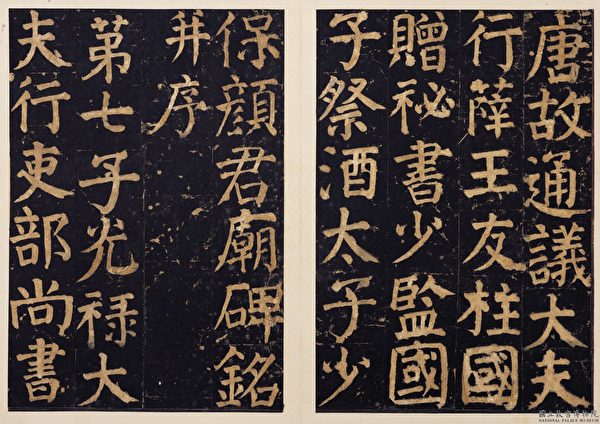 唐故通議大夫
行薛王友柱國
贈祕書少監國
子祭酒太子少
保顏君廟碑銘
并序
第七子光祿大
夫行吏部尚書
國立故宮博物院
NATIONAL PALACE MUSEUM